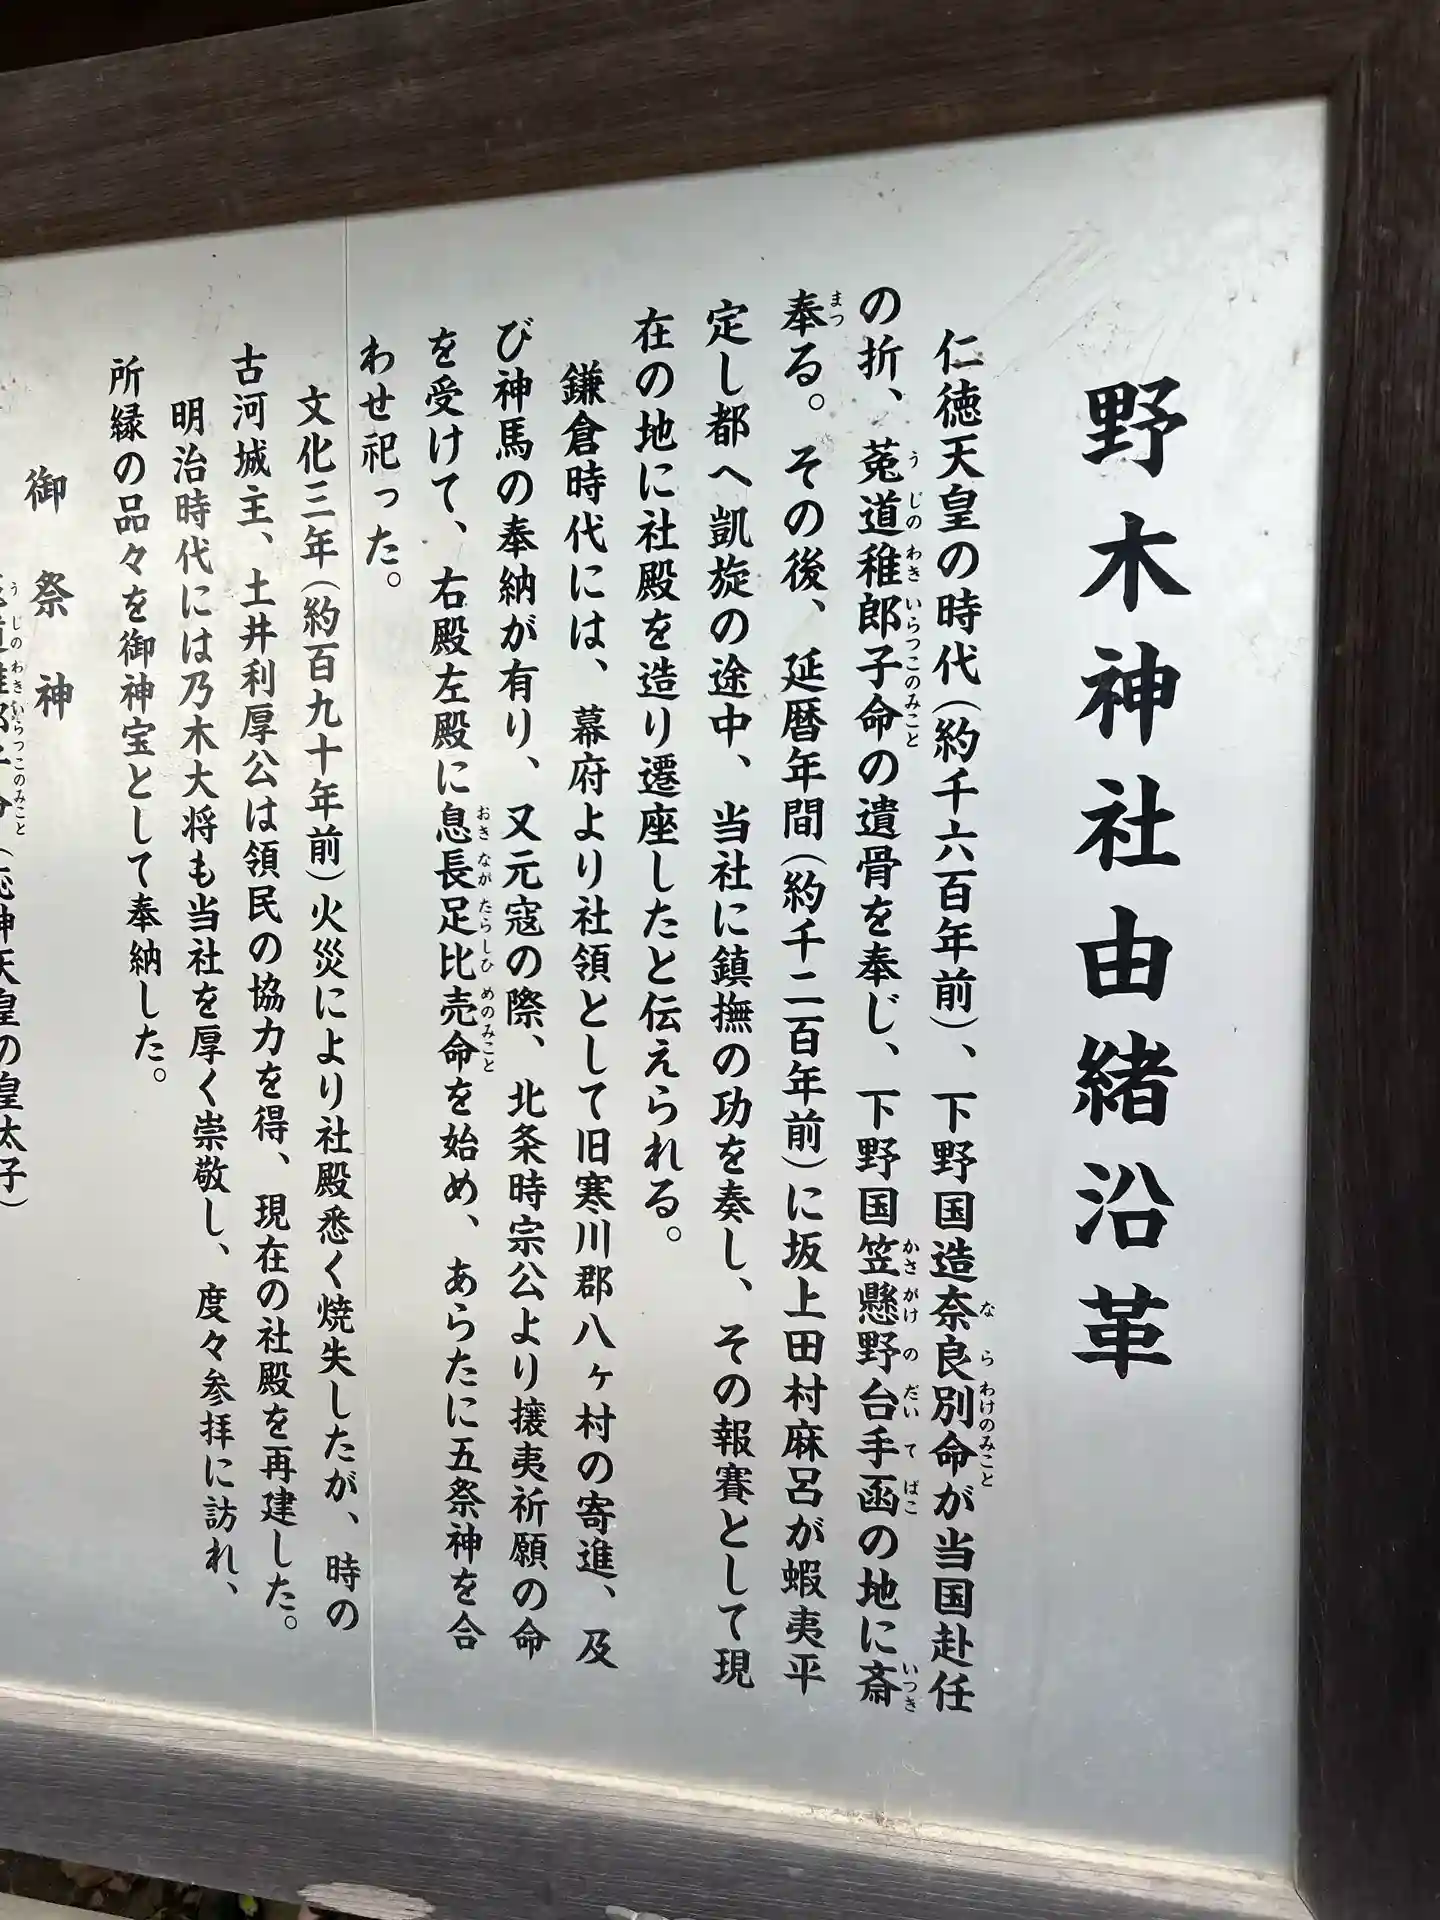 野木神社由緒沿革
仁徳天皇の時代(約千六百年前)、下野国造奈良別命が当国赴任
の折、菟道稚郎子命の遺骨を奉じ、下野国笠懸野台手函の地に斎
奉る。その後、延暦年間(約千二百年前)に坂上田村麻呂が蝦夷平
定し都へ凱旋の途中、当社に鎮撫の功を奏し、その報賽として現
在の地に社殿を造り遷座したと伝えられる。
鎌倉時代には、幕府より社領として旧寒川郡八ヶ村の寄進、及
び神馬の奉納が有り、又元寇の際、北条時宗公より攘夷祈願の命
を受けて、右殿左殿に息長足比売命を始め、あらたに五祭神を合
わせ祀った。
文化三年(約百九十年前)火災により社殿悉く焼失したが、時の
古河城主、土井利厚公は領民の協力を得、現在の社殿を再建した。
明治時代には乃木大将も当社を厚く崇敬し、度々参拝に訪れ、
所縁の品々を御神宝として奉納した。
御祭神
(応神天皇の皇太子)